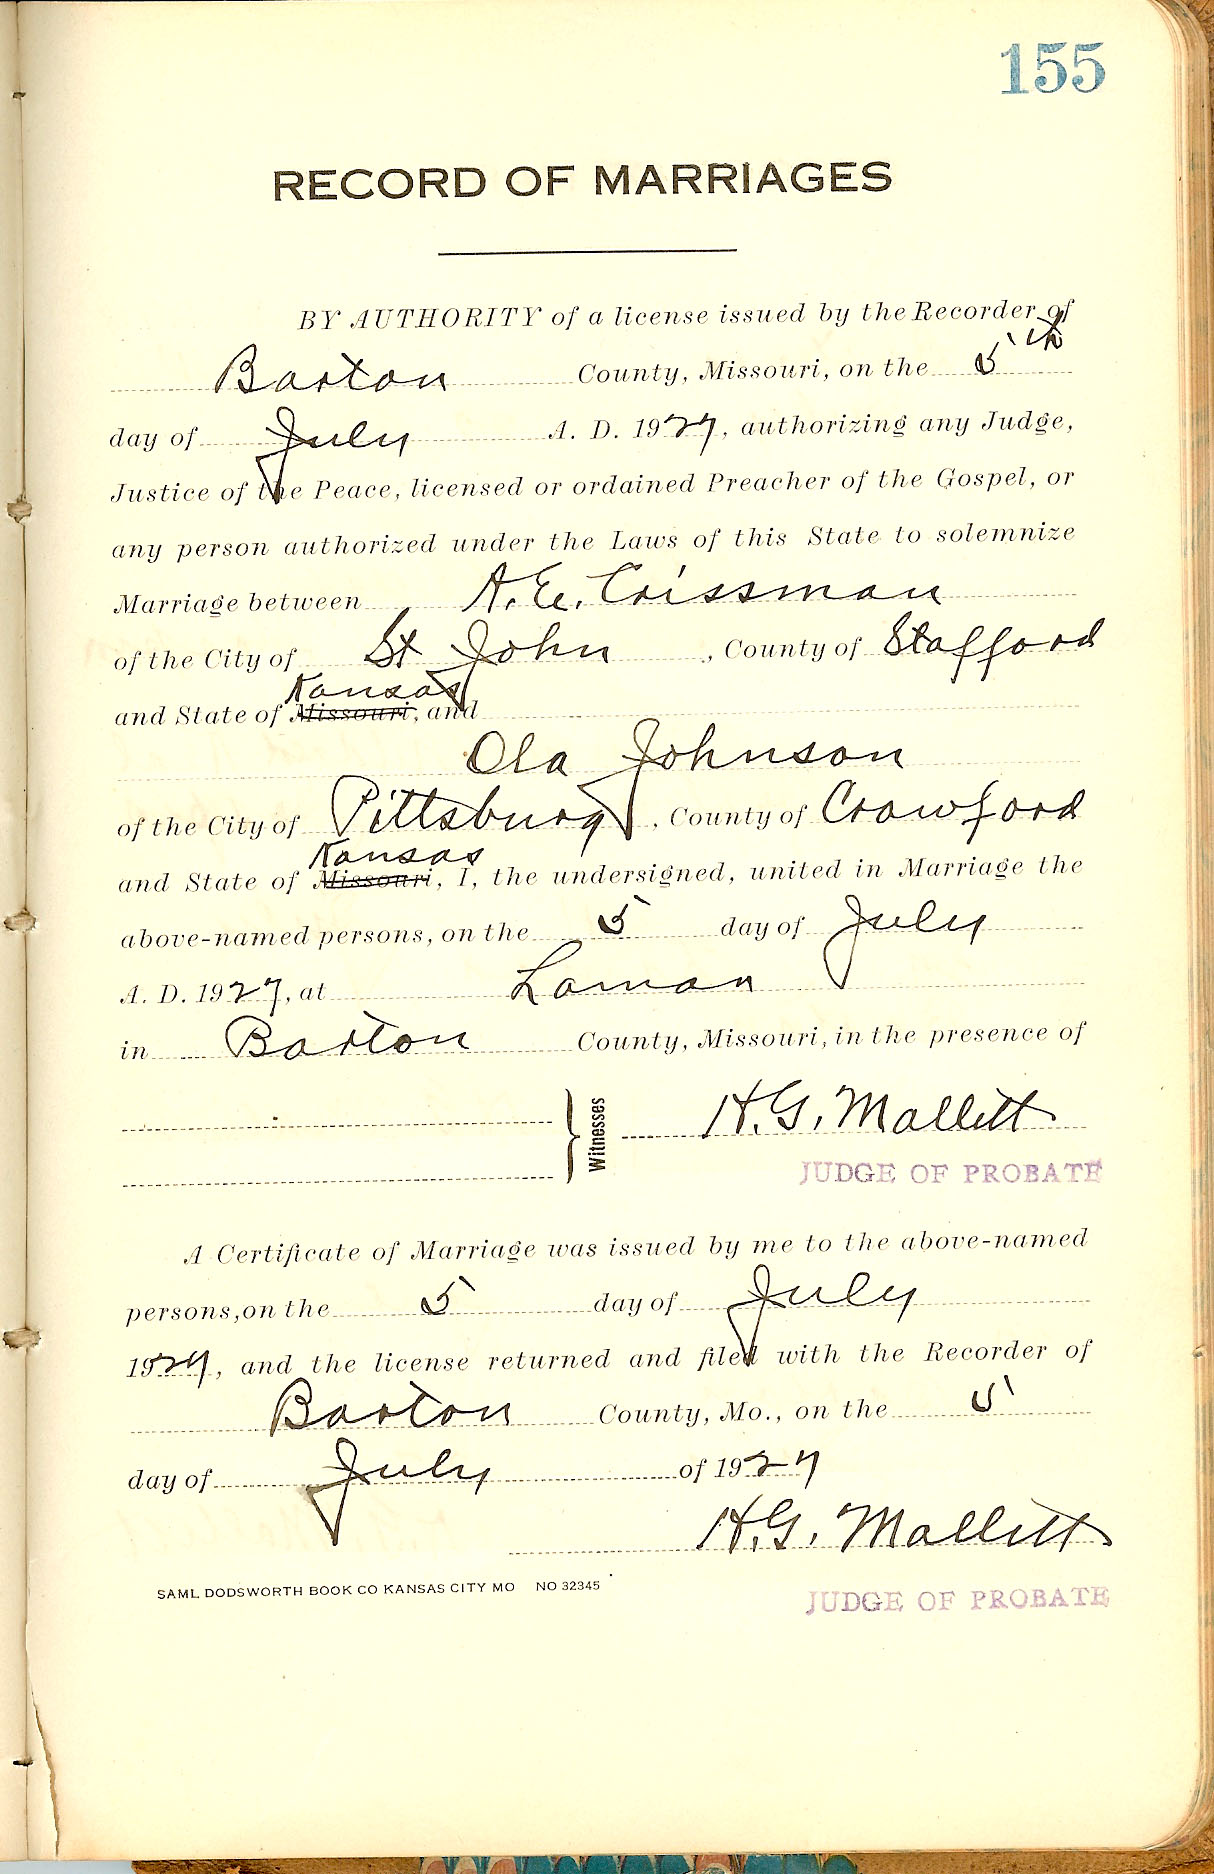 155
RECORD OF MARRIAGES
BY AUTHORITY of a license issued by the Recorder of
Barton County, Missouri, on the 5th
day of July A. D. 1927, authorizing any Judge,
Justice of the Peace, licensed or ordained Preacher of the Gospel, or
any person authorized under the Laws of this State to solemnize
Marriage between A. E. Crissman
of the City of St John, County of Stafford
Kansas
and State of Missouri, and
Ola Johnson
of the City of Pittsburg, County of Crawford
Kansas
and State of Missouri, I, the undersigned, united in Marriage the
above-named persons, on the 5 day of July
A. D. 1927, at Lamar
in Barton County, Missouri, in the presence of
Witnesses H. G. Mallitt
JUDGE OF PROBATE
A Certificate of Marriage was issued by me to the above-named
persons, on the 5 day of July
1927, and the license returned and filed with the Recorder of
Barton County, Mo., on the 5
day of July of 1927
H. G. Mallitt
SAML DODSWORTH BOOK CO KANSAS CITY MO NO 32345
JUDGE OF PROBATE